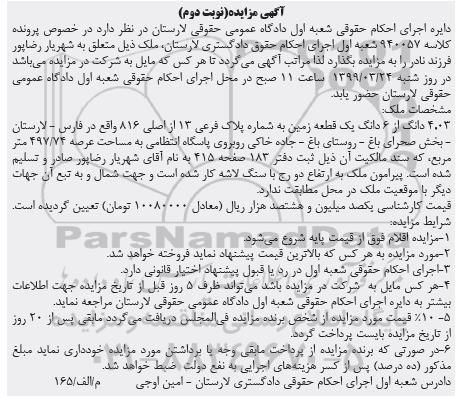 آگهی مزایده(نوبت دوم)
دایره اجرای احکام حقوقی شعبه اول دادگاه عمومی حقوقی لارستان در نظر دارد در خصوص پرونده
کلاسه ۹۴۰۰۵۷ شعبه اول اجرای احکام حقوق دادگستری لارستان، ملک ذیل متعلق به شهریار رضاپور
فرزند نادر را به مزایده بگذارد لذا مراتب آگهی می‌گردد تا هر کس که مایل به شرکت در مزایده می‌باشد
در روز شنبه ۱۳۹۹/۰۳/۲۴ ساعت ۱۱ صبح در محل اجرای احکام حقوقی شعبه اول دادگاه عمومی
حقوقی لارستان حضور یابد.
مشخصات ملک:
۴.۰۳ دانگ از ۶ دانگ یک قطعه زمین به شماره پلاک فرعی ۱۳ از اصلی ۸۱۶ واقع در فارس - لارستان
- بخش صحرای باغ - روستای باغ - جاده خاکی روبروی پاسگاه انتظامی به مساحت عرصه ۴۹۷/۷۴ متر
مربع، که سند مالکیت آن ذیل ثبت دفتر ۱۸۳ صفحه ۴۱۵ به نام آقای شهریار رضاپور صادر و تسلیم
شده است. پیرامون ملک به ارتفاع دو رج با سنگ لاشه کار شده است و جهت شمال و به تبع آن جهات
دیگر با موقعیت ملک در محل مطابقت ندارد.
قیمت کارشناسی یکصد میلیون و هشتصد هزار ریال (معادل ۱۰۰۸۰۰۰۰ تومان) تعیین گردیده است.
شرایط مزایده:
۱-مزایده اقلام فوق از قیمت پایه شروع می‌شود.
۲-مورد مزایده به هر کس که بالاترین قیمت پیشنهاد نماید فروخته خواهد شد.
۳-اجرای احکام حقوقی شعبه اول در رد یا قبول پیشنهاد اختیار قانونی دارد.
۴-هر کس مایل به شرکت در مزایده باشد می‌تواند ظرف ۵ روز قبل از تاریخ مزایده جهت اطلاعات
بیشتر به دایره اجرای احکام حقوقی شعبه اول دادگاه عمومی حقوقی لارستان مراجعه نماید.
۵- ۱۰٪ قیمت مورد مزایده از شخص برنده مزایده فی‌المجلس دریافت می‌گردد مابقی پس از ۲۰ روز
از تاریخ مزایده بایست پرداخت گردد.
۶-در صورتی که برنده مزایده از پرداخت مابقی وجه یا برداشتن مورد مزایده خودداری نماید مبلغ
مذکور (ده درصد) پس از کسر هزینه‌های اجرایی به نفع دولت ضبط خواهد شد.
دادرس شعبه اول اجرای احکام حقوقی دادگستری لارستان - امین اوجی م/الف/۱۶۵
ParsNamadData